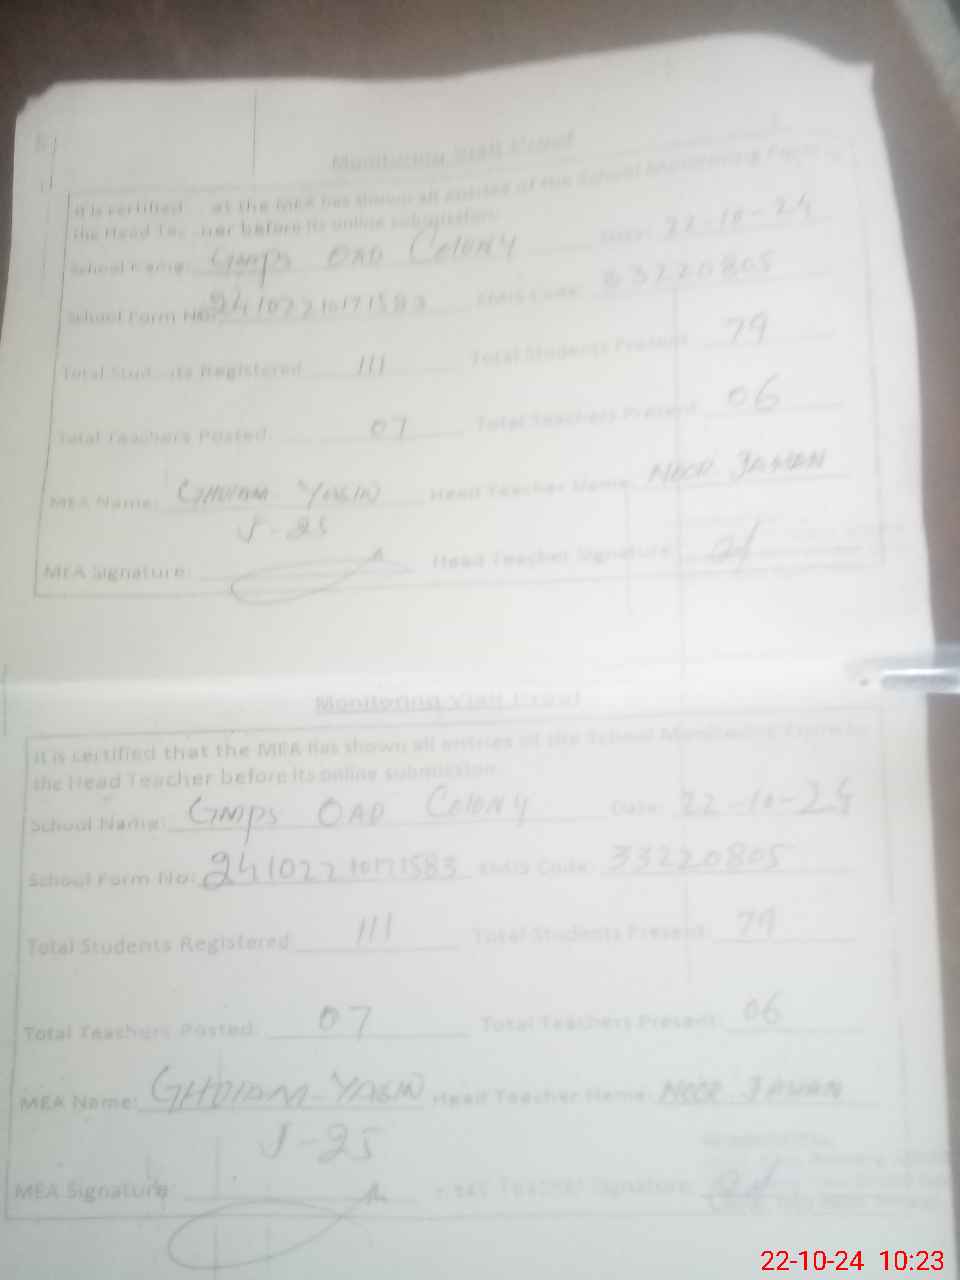 Monitoring Visit Proof
It is certified at the MEA has shown all entries of the School Monitoring Form
the Head Tea her before its online submission
School Name: GMPS OAD COLONY Date: 22-10-24
School Form No: 24102210171583 EMIS Code: 33220805
Total Students Registered 111 Total Students Present 79
Total Teachers Posted: 07 Total Teachers Present 06
MEA Name: GHULAM YASIN Head Teacher Name: NOOR JAHAN
J-25
MEA Signature: Head Teacher Signature:
Monitoring Visit Proof
It is certified that the MEA has shown all entries of the School Monitoring Form to
the Head Teacher before its online submission
School Name: GMPS OAD COLONY Date: 22-10-24
School Form No: 24102210171583 EMIS Code: 33220805
Total Students Registered 111 Total Students Present: 79
Total Teachers Posted: 07 Total Teachers Present: 06
MEA Name: GHULAM YASIN Head Teacher Name: NOOR JAHAN
J-25
MEA Signature: Teacher Signature:
22-10-24 10:23